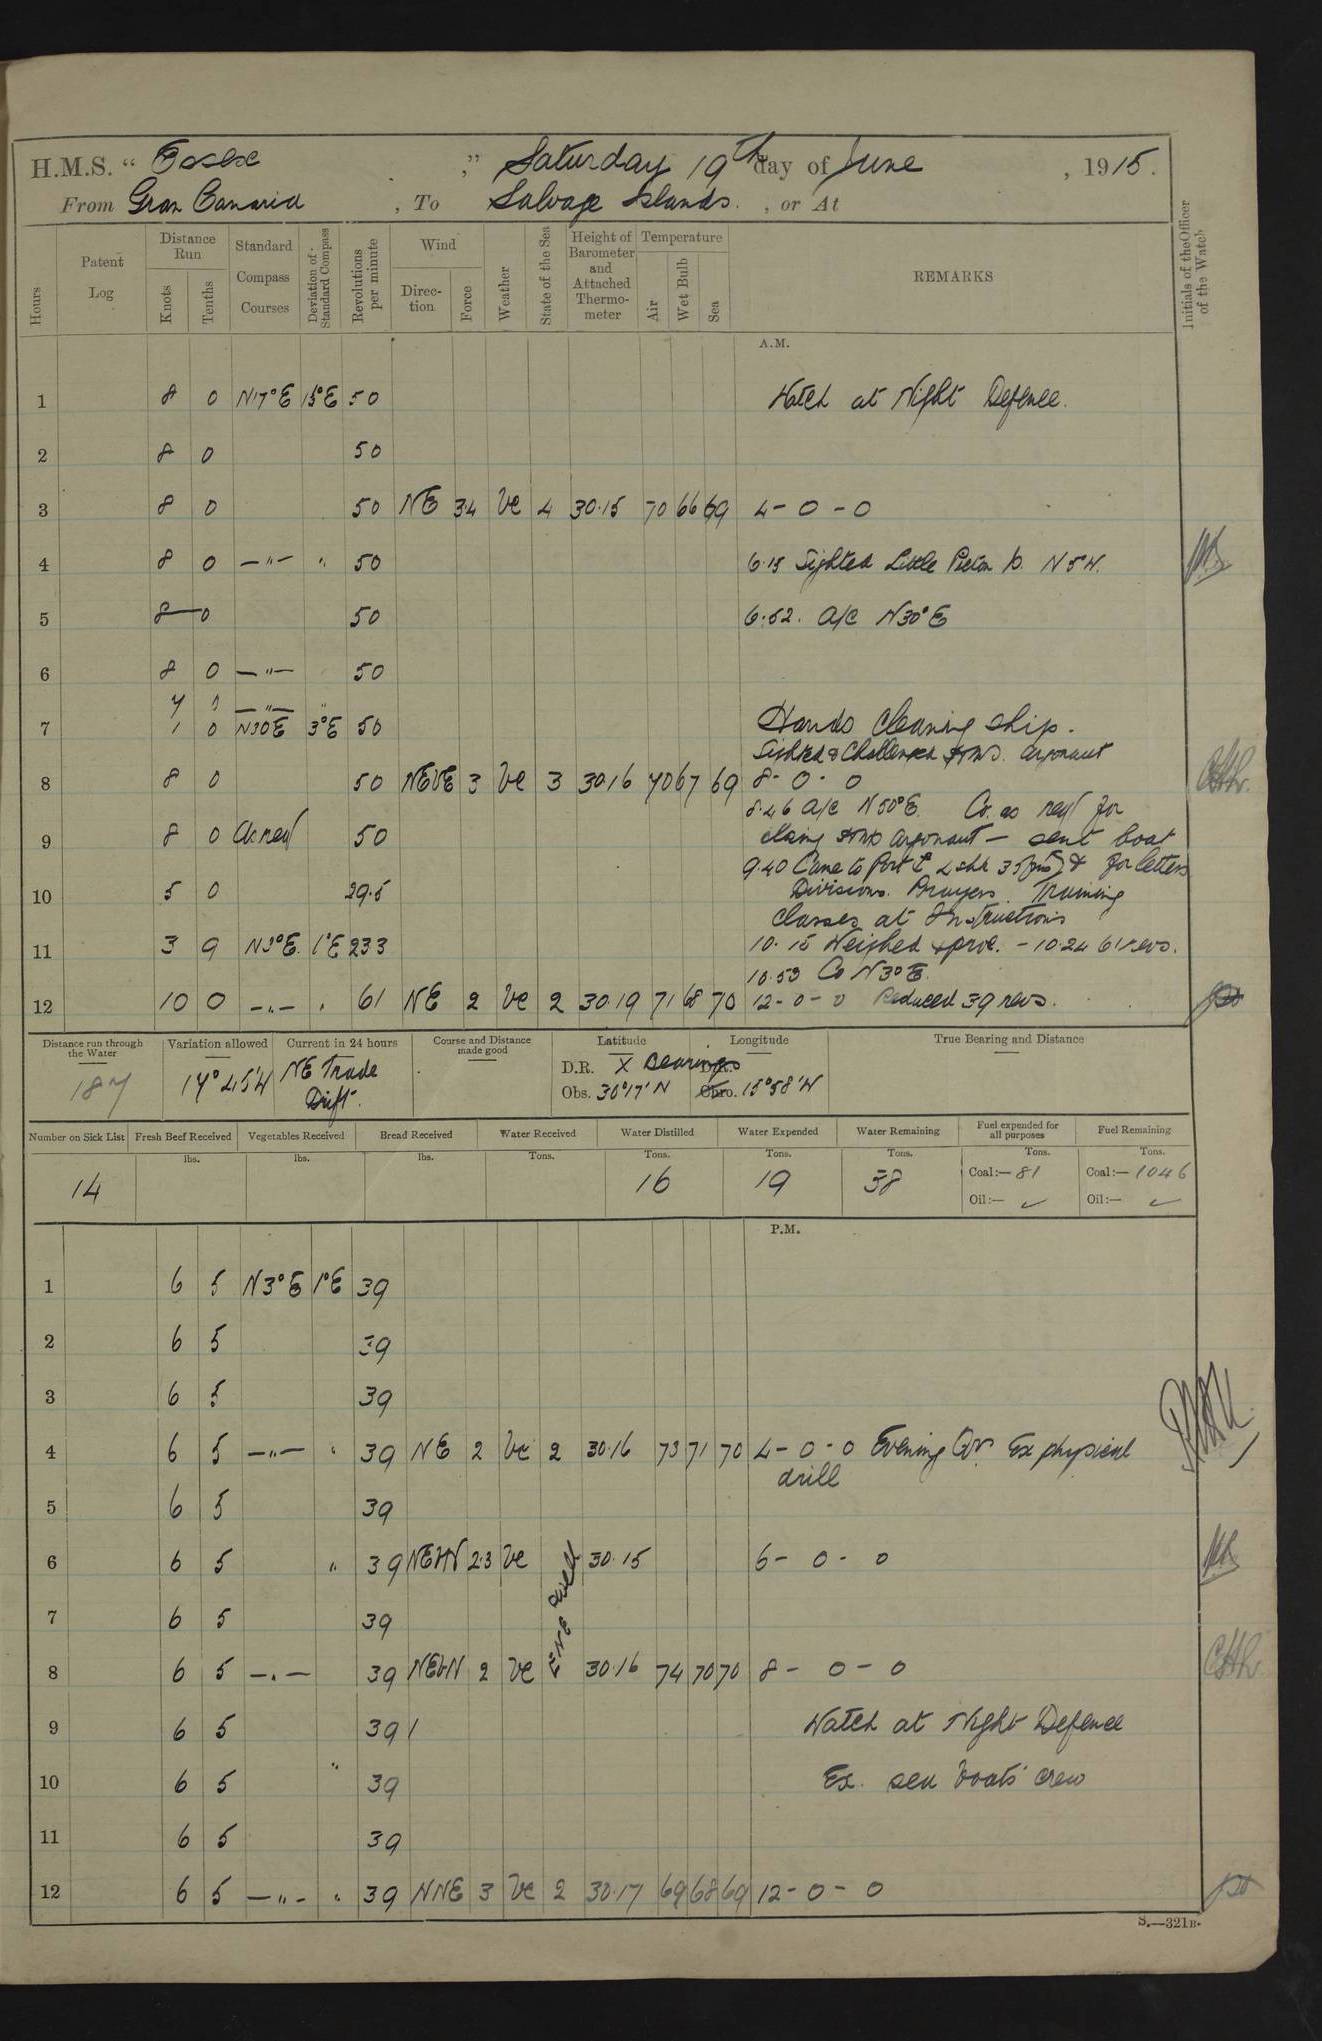 H.M.S. " Essex ," Saturday 19th day of June , 1915.
From Gran Canaria , To Salvage Islands. , or At
Hours
Patent Log
Distance Run
Knots
Tenths
Standard Compass Courses
Deviation of Standard Compass
Revolutions per minute
Wind
Direction
Force
Weather
State of the Sea
Height of Barometer and Attached Thermometer
Temperature
Air
Wet Bulb
Sea
REMARKS
Initials of the Officer of the Watch
A.M.
1 8 0 N17°E 50 Watch at Night Defence.
2 8 0 50
3 8 0 50 NE 34 4 30.15 70 66 69 4-0-0
4 8 0 —"— " 50 6.15 Sighted Little N5W.
5 8—0 50 6.52. A/C N30°E
6 8 0 —"— 50
7 —"— "
1 0 N30E 3°E 50 Hands cleaning ship.
Sighted & Challenged HMS. Argonaut
8 8 0 50 3 3 30.16 70 67 69 8-0-0
8.46 A/C N50°E. Co. as req for
9 8 0 Co. req 50 closing HMS Argonaut — sent boat
9.40 Came to Port for letters
10 5 0 29.5 Divisions. Prayers. Training
Classes at Instructions
11 3 9 N3°E. 1°E 233 10.15 Weighed & proc. - 10.24 61 revs.
10.53 Co
12 10 0 —.— " 61 NE 2 2 30.19 71 68 70 12-0-0 Reduced 39 revs.
Distance run through the Water
187
Variation allowed
17°45'W
Current in 24 hours
NE Trade Drift.
Course and Distance made good
Latitude
D.R. X Bearings
Obs. 30°17'N
Longitude
15°58'W
True Bearing and Distance
Number on Sick List Fresh Beef Received Vegetables Received Bread Received Water Received Water Distilled Water Expended Water Remaining Fuel expended for all purposes Fuel Remaining
lbs. lbs. lbs. Tons. Tons. Tons. Tons. Tons. Tons.
14 16 19 38 Coal:— 81 Coal:— 1046
Oil:— ✓ Oil:— ✓
P.M.
1 6 5 N3°E 1°E 39
2 6 5 39
3 6 5 39
4 6 5 —"— " 39 NE 2 2 30.16 73 71 70 4-0-0 Evening Qrs Ex physical
drill
5 6 5 39
6 6 5 " 39 2.3 30.15 6-0-0
ENE Swell
7 6 5 39
8 6 5 —.— 39 NEbN 2 30.16 74 70 70 8-0-0
9 6 5 39 Watch at Night Defence
10 6 5 " 39 Ex. sea boats' crew
11 6 5 39
12 6 5 —"— " 39 NNE 3 2 30.17 69 68 69 12-0-0
S.—321B.